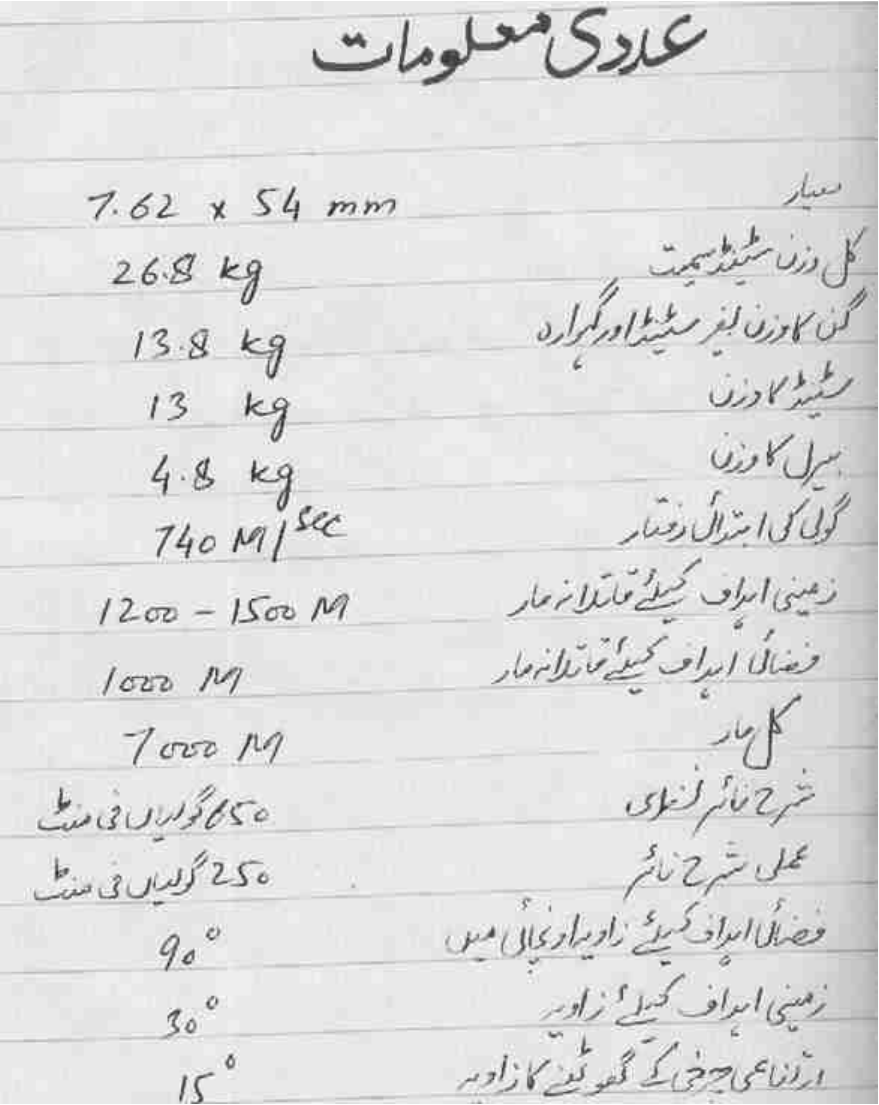 عددی معلومات
معیار 7.62 x 54 mm
کل وزن سٹینڈ سمیت 26.8 kg
گن کا وزن بغیر سٹینڈ اور گہوارہ 13.8 kg
سٹینڈ کا وزن 13 kg
بیرل کا وزن 4.8 kg
گولی کی ابتدائی رفتار 740 M/sec
زمینی اہداف کیلئے قاتلانہ مار 1200 - 1500 M
فضائی اہداف کیلئے قاتلانہ مار 1000 M
کل مار 7000 M
شرح فائر 650 گولیاں فی منٹ
عملی شرح فائر 250 گولیاں فی منٹ
فضائی اہداف کیلئے زاویہ اونچائی میں 90°
زمینی اہداف کیلئے زاویہ 30°
ارتفاعی چرخی کے گھومنے کا زاویہ 15°